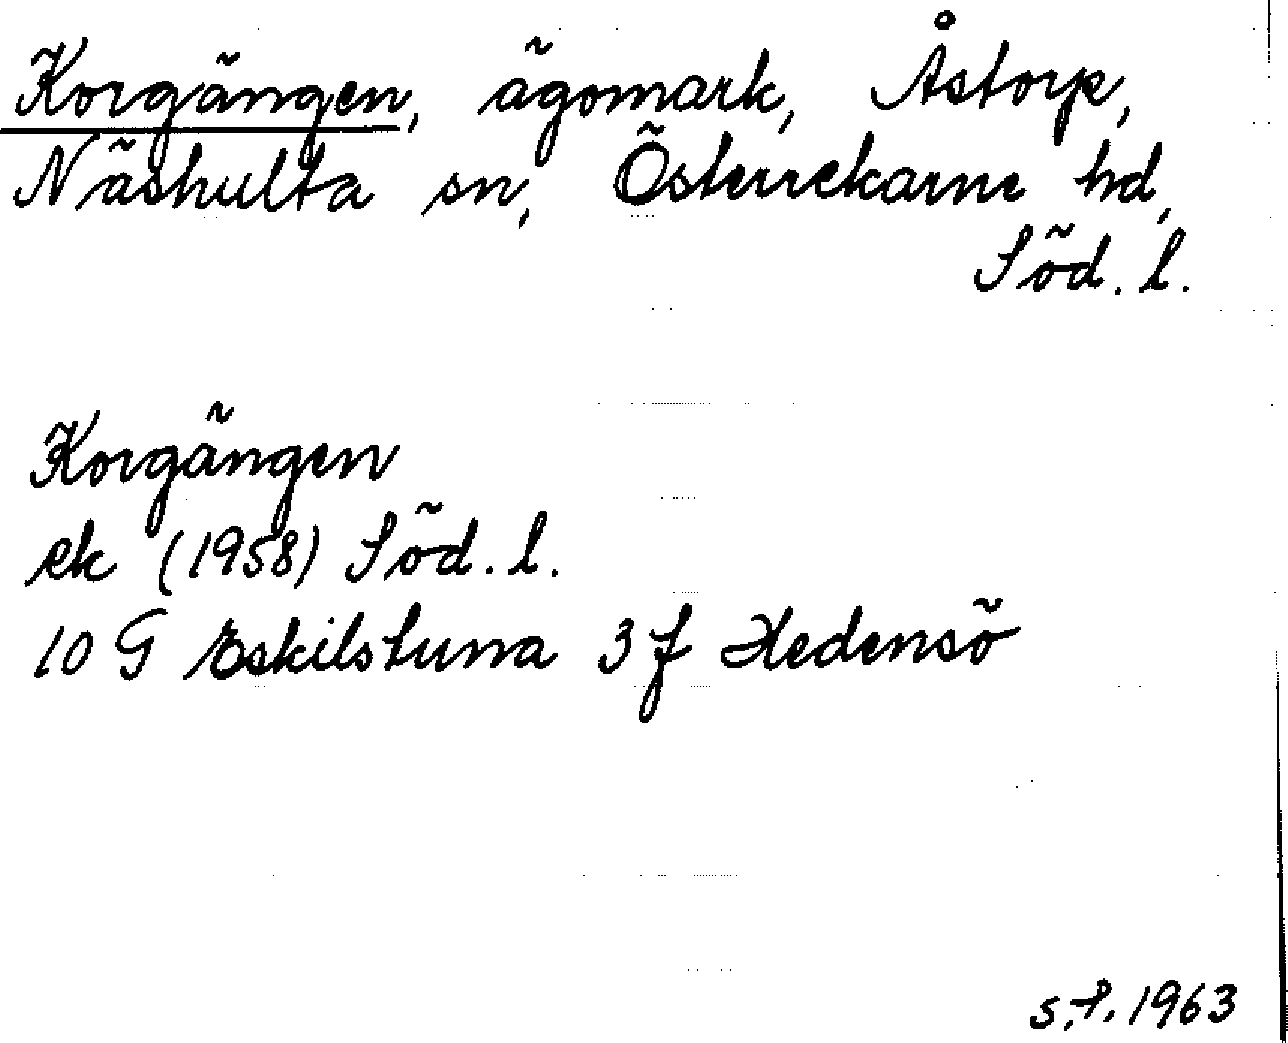 Korgängen, ägomark, Åstorp,
Näshulta sn, Österrekarne hd,
Söd. l.
Korgängen
ek (1958) Söd. l.
10 G Eskilstuna 3 f Hedensö
1963